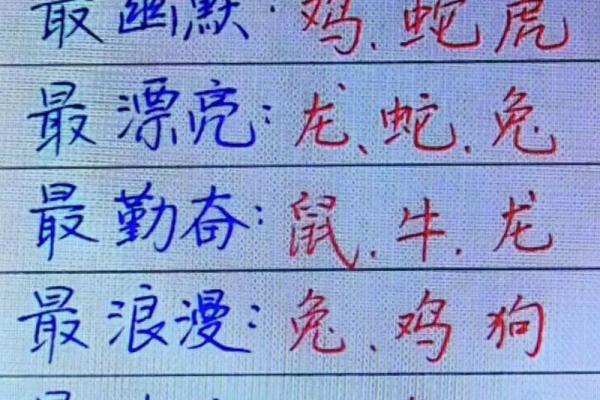 最幽默:鸡、蛇虎
最漂亮:龙、蛇、兔
最勤奋:鼠、牛、龙
最浪漫:兔、鸡狗